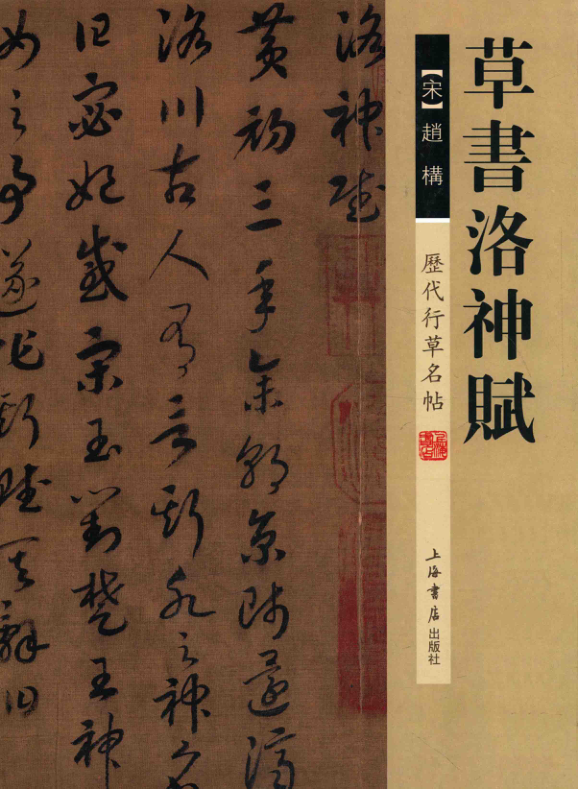 草書洛神賦
【宋】趙構
歷代行草名帖
上海書店出版社
洛神賦
黄初三年余朝京師還濟
洛川古人有言斯水之神名
曰宓妃感宋玉對楚王神
女之事遂作斯賦其辭曰